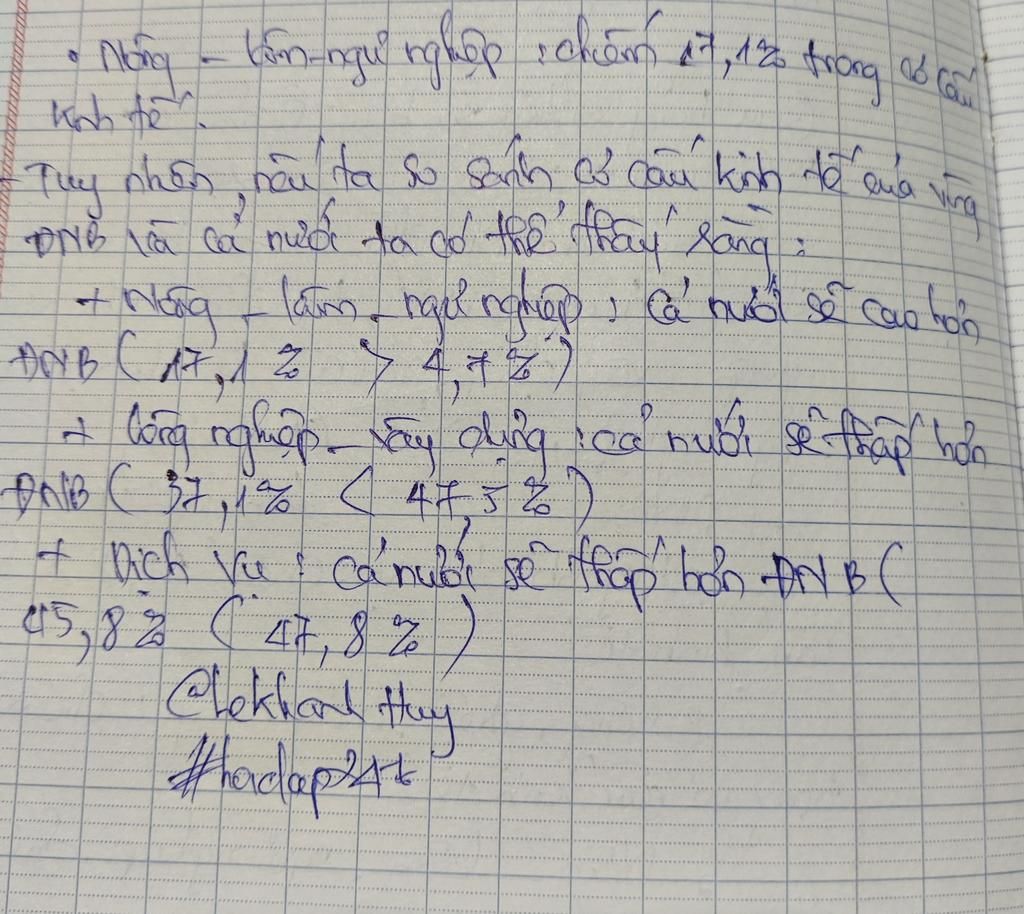 • Nông – lâm-ngư nghiệp : chiếm 17,1% trong cơ cấu
kinh tế.
- Tuy nhiên, nếu ta so sánh cơ cấu kinh tế của vùng
ĐNB và cả nước ta có thể thấy rằng :
+ Nông – lâm – ngư nghiệp : Cả nước sẽ cao hơn
ĐNB ( 17,1 % > 4,7 % )
+ Công nghiệp – xây dựng : cả nước sẽ thấp hơn
ĐNB ( 37,1% < 47,5 % )
+ Dịch vụ : cả nước sẽ thấp hơn ĐNB (
45,8 % < 47,8 % )
@LekhanhHuy
#hadap24h